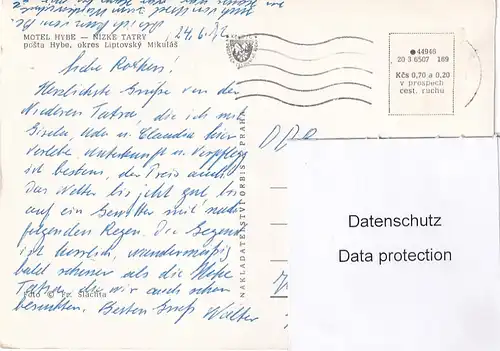 24.6.72
MOTEL HYBE — NÍZKE TATRY
pošta Hybe, okres Liptovský Mikuláš
44946
20 3 6507 169
Kčs 0,70 a 0,20
v prospech
cest. ruchu
Liebe
Herzlichste Grüße von der
Niederen Tatra, die ich mit
Gisela, Udo u. Claudia hier
verlebe. Unterkunft u. Verpfleg
ist bestens, der Preis auch.
Das Wetter bis jetzt gut bis
auf ein Gewitter mit nach-
folgenden Regen. Die Gegend
ist herrlich, wandermäßig
bald schöner als die Hohe
Tatra, die wir auch schon
besuchten. Besten Gruß Walter
Foto © Fr. Šlachta
NAKLADATELSTVÍ ORBIS PRAHA
DDR
Datenschutz
Data protection